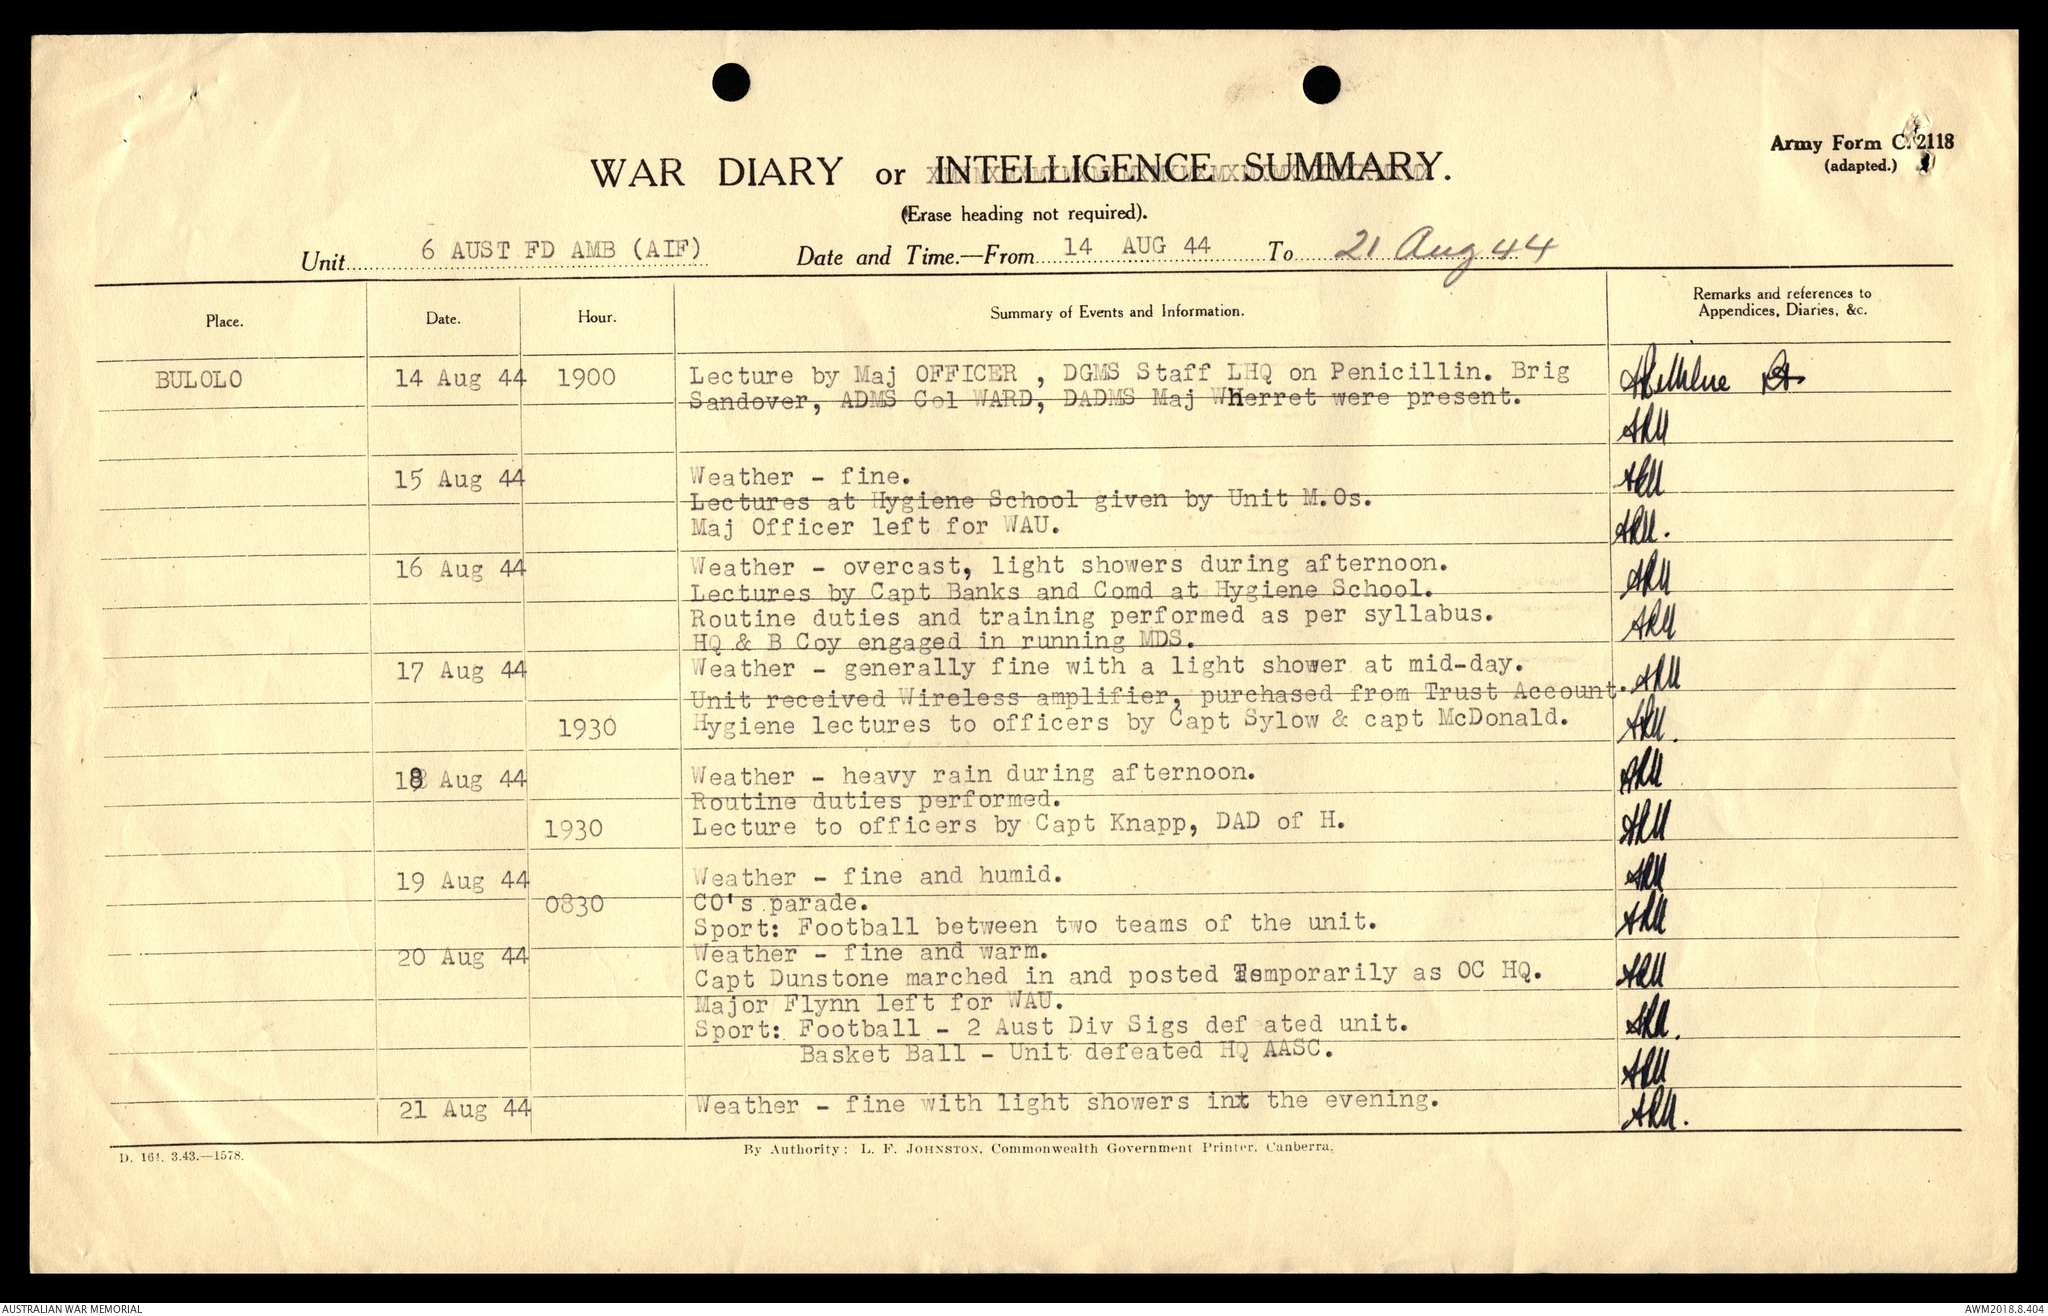 Army Form C. 2118
(adapted.)
WAR DIARY or INTELLIGENCE SUMMARY.
(Erase heading not required).
Unit 6 AUST FD AMB (AIF) Date and Time.—From 14 AUG 44 To 21 Aug 44
Place. Date. Hour. Summary of Events and Information. Remarks and references to
Appendices, Diaries, &c.
BULOLO 14 Aug 44 1900 Lecture by Maj OFFICER , DGMS Staff LHQ on Penicillin. Brig
Sandover, ADMS Col WARD, DADMS Maj Wherret were present.
ARM
15 Aug 44 Weather - fine. ARM
Lectures at Hygiene School given by Unit M.Os.
Maj Officer left for WAU. ARM.
16 Aug 44 Weather - overcast, light showers during afternoon. ARM
Lectures by Capt Banks and Comd at Hygiene School.
Routine duties and training performed as per syllabus. ARM
HQ & B Coy engaged in running MDS.
17 Aug 44 Weather - generally fine with a light shower at mid-day. ARM
Unit received Wireless amplifier, purchased from Trust Account.
1930 Hygiene lectures to officers by Capt Sylow & capt McDonald. ARM.
18 Aug 44 Weather - heavy rain during afternoon. ARM
Routine duties performed.
1930 Lecture to officers by Capt Knapp, DAD of H. ARM
19 Aug 44 Weather - fine and humid. ARM
0830 CO's parade.
Sport: Football between two teams of the unit. ARM
20 Aug 44 Weather - fine and warm.
Capt Dunstone marched in and posted Temporarily as OC HQ. ARM
Major Flynn left for WAU.
Sport: Football - 2 Aust Div Sigs def ated unit. ARM.
Basket Ball - Unit defeated HQ AASC. ARM
21 Aug 44 Weather - fine with light showers inx the evening. ARM.
D. 164. 3.43.—1578. By Authority: L. F. JOHNSTON, Commonwealth Government Printer, Canberra.
AUSTRALIAN WAR MEMORIAL AWM2018.8.404